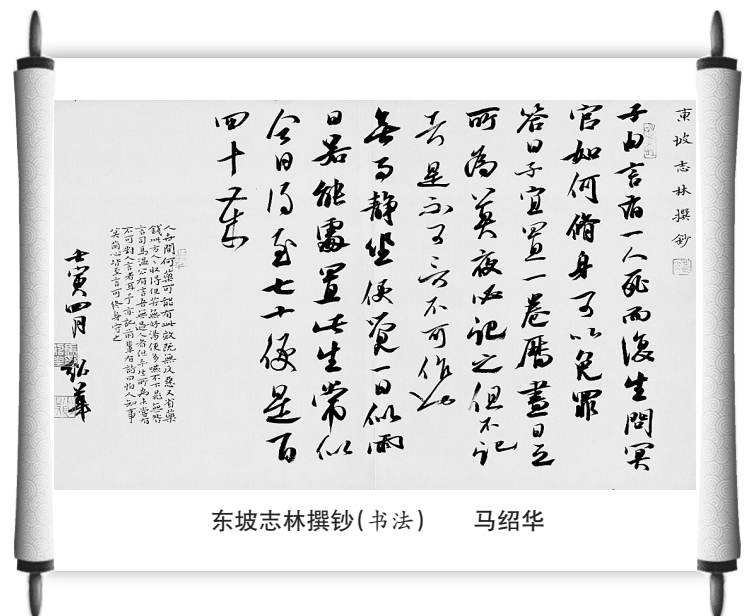 東坡志林撰鈔
子由言有一人死而復生問冥
官如何脩身可以免罪
答曰子宜置一卷曆晝日之
所為莫夜必記之但不記
者是不可言不可作也
無事靜坐便覺一日似兩
日若能處置此生常似
今日得至七十便是百
四十歲
人世間何藥可能有此效既無反惡又省藥
錢此方人人收得但苦無好湯使多嚥不下晁無咎
言司馬溫公有言吾無過人者但平生所為未嘗有
不可對人言者耳予亦記前輩有詩曰怕人知事
莫萌心皆至言可終身守之
壬寅四月
紹華
东坡志林撰钞(书法) 马绍华